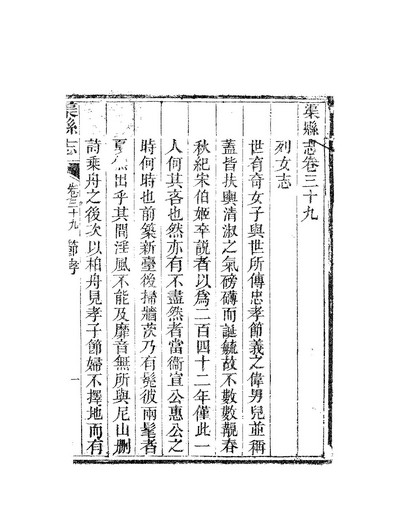 渠縣志卷三十九
列女志
世有奇女子與世所傳忠孝節義之偉男兒並稱
蓋皆扶輿清淑之氣磅礴而誕毓故不數數覯春
秋紀宋伯姬卒說者以為二百四十二年僅此一
人何其吝也然亦有不盡然者當衛宣公惠公之
時何時也前築新臺後掃牆茨乃有髧彼兩髦者
出乎其間淫風不能及靡音無所與尼山刪
詩乘舟之後次以柏舟見孝子節婦不擇地而有
渠縣志
卷三十九 節孝
一